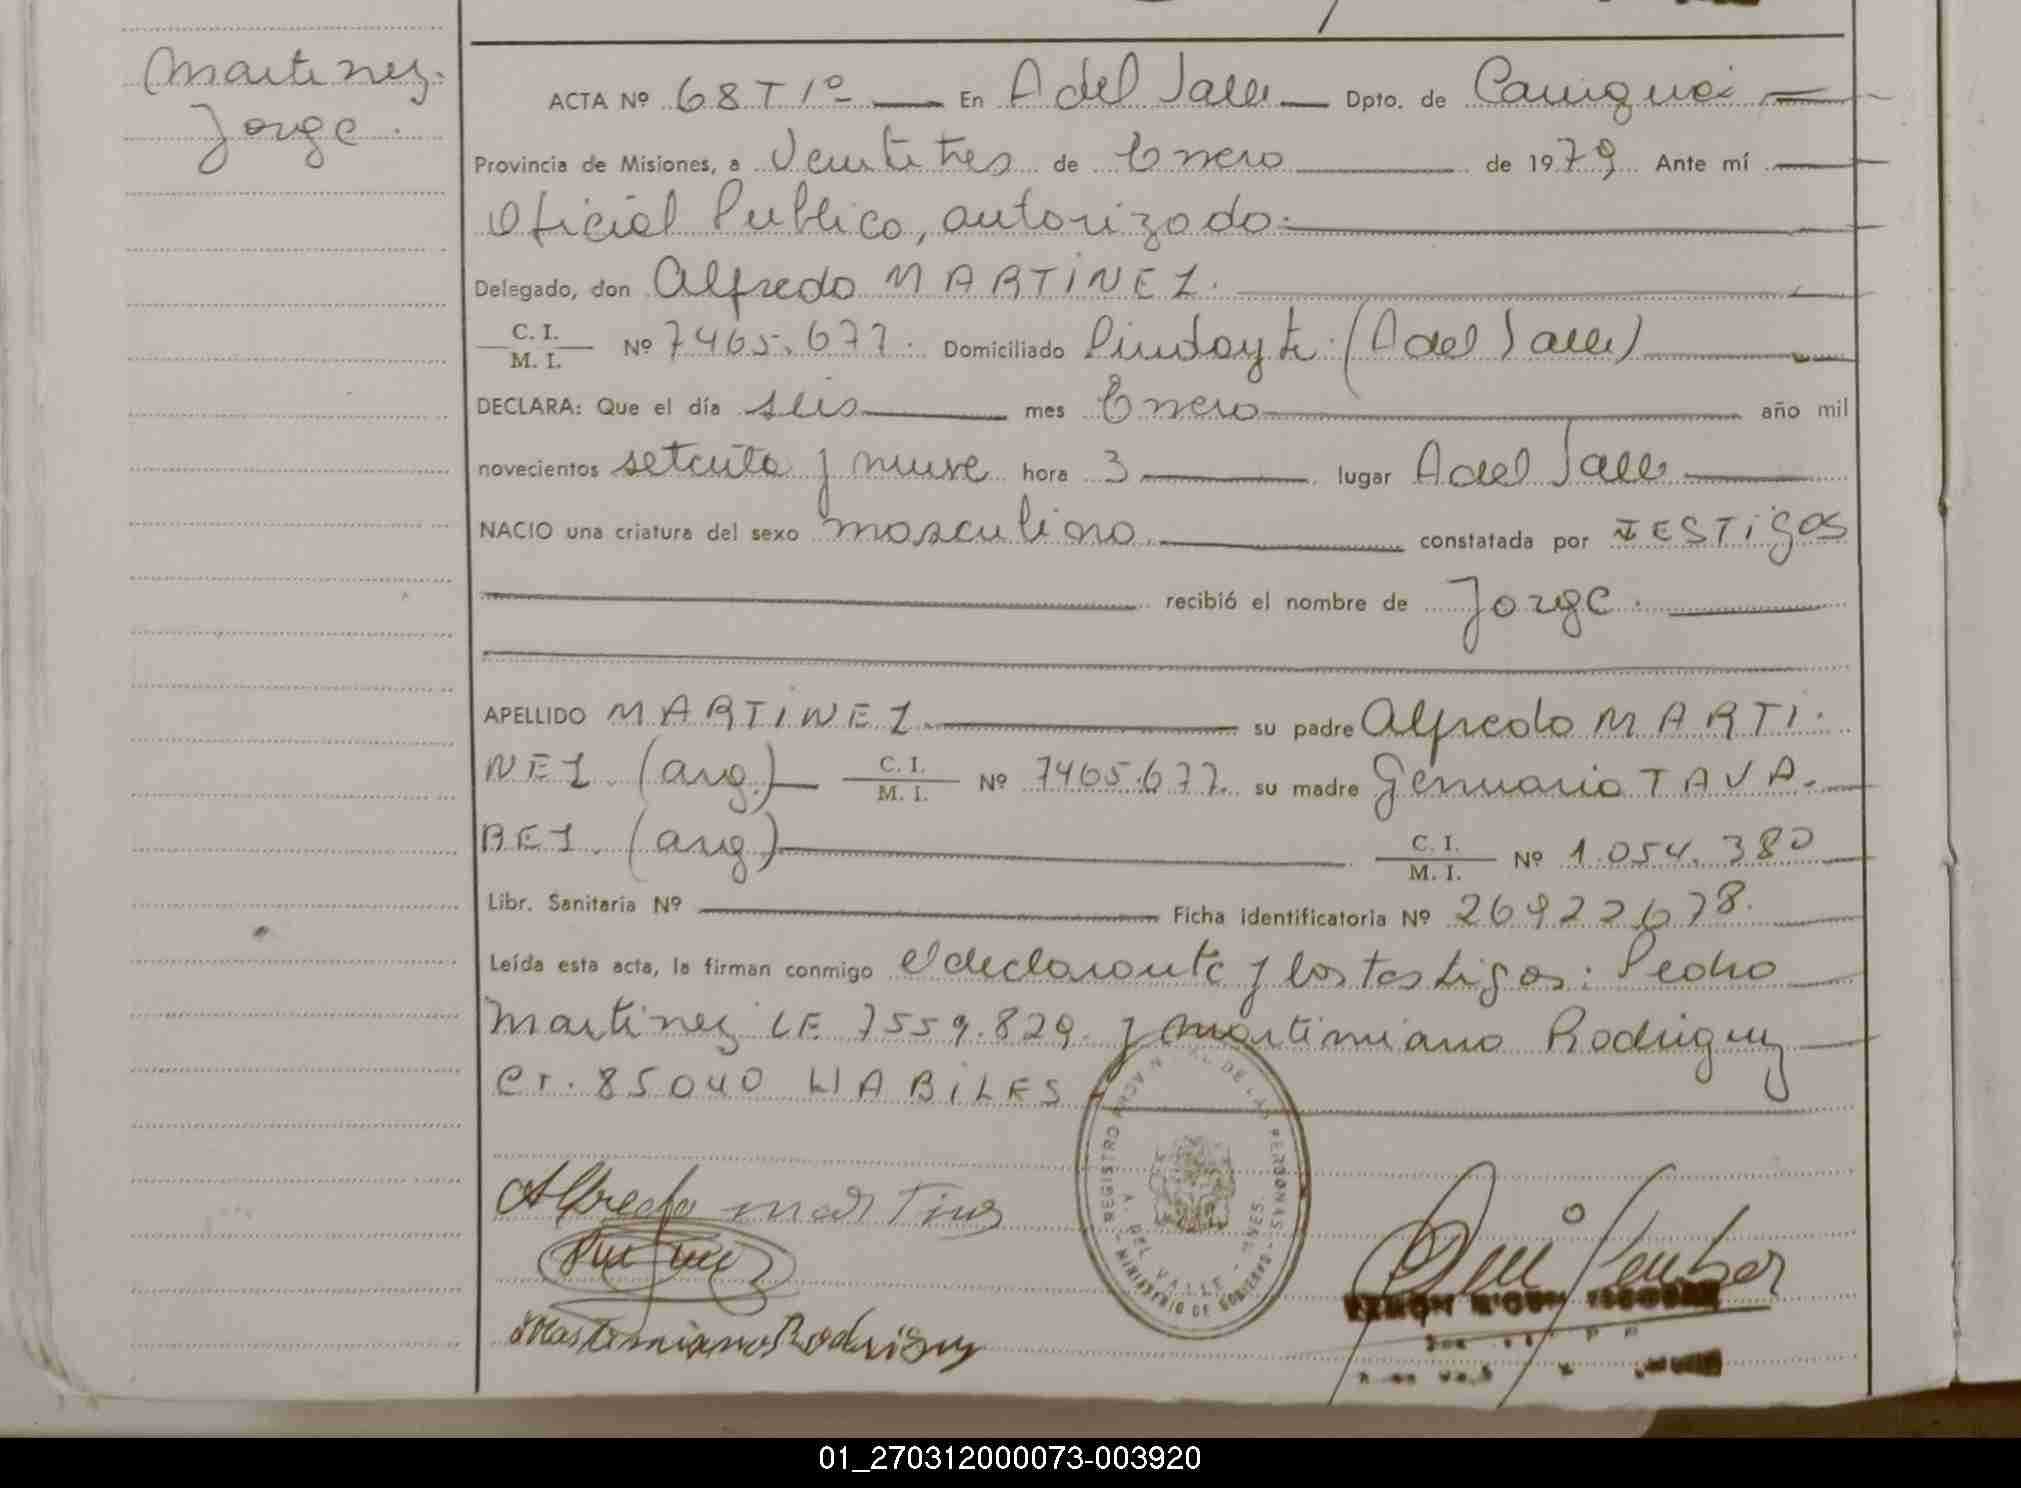 Martinez
Jorge.
ACTA Nº 68 T 1º En A del Valle Dpto. de Cainguas
Provincia de Misiones, a Veintitres de Enero de 1979 Ante mí
Oficial Publico, autorizado.
Delegado, don Alfredo MARTINEZ.
C. I.
M. I.
Nº 7465.677. Domiciliado Pindayti (A del Valle)
DECLARA: Que el día seis mes Enero año mil
novecientos setenta y nueve hora 3 lugar A del Valle
NACIO una criatura del sexo masculino constatada por TESTIGOS
recibió el nombre de Jorge.
APELLIDO MARTINEZ su padre Alfredo MARTI-
NEZ. (arg.) C. I. M. I. Nº 7465.677. su madre Genuaria TAVA-
REZ. (arg) C. I. M. I. Nº 1.054.380
Libr. Sanitaria Nº Ficha identificatoria Nº 26922678.
Leída esta acta, la firman conmigo el declarante y los testigos: Pedro
Martinez LE 7559.829. y Martimiano Rodriguez
Cr. 85040 HABILES
Alfredo martines
Martimiano Rodriguez
REGISTRO PROVINCIAL DE LAS PERSONAS
A. DEL VALLE - MNES.
MINISTERIO DE GOBIERNO
01_270312000073-003920